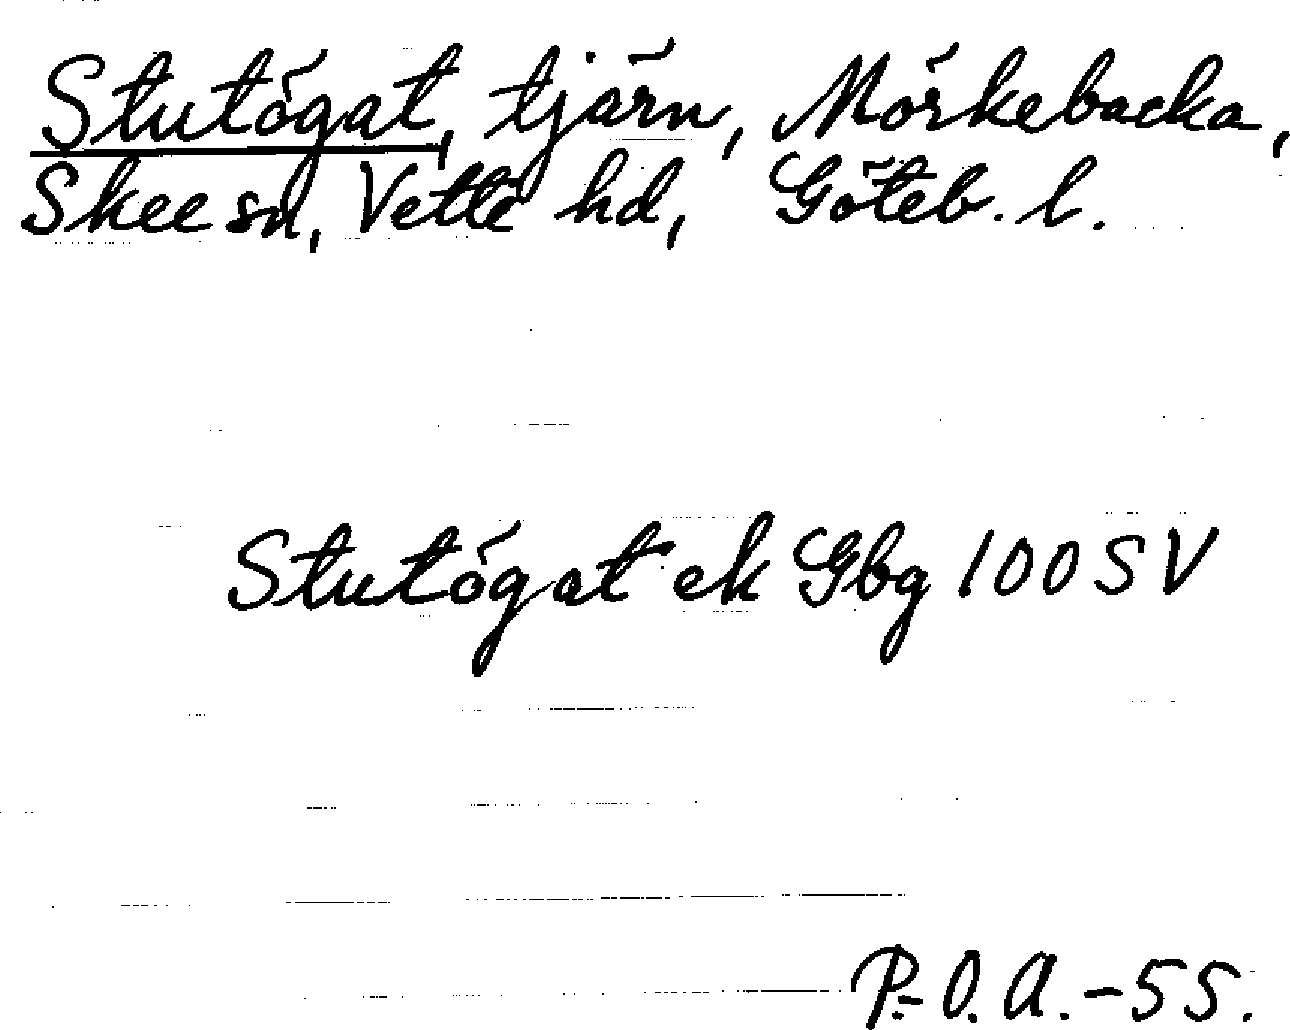 Stutögat, tjärn, Mörkebacka,
Skee sn, Vette hd, Göteb. l.
Stutögat ek Gbg 100 SV
P.-O. A. -55.